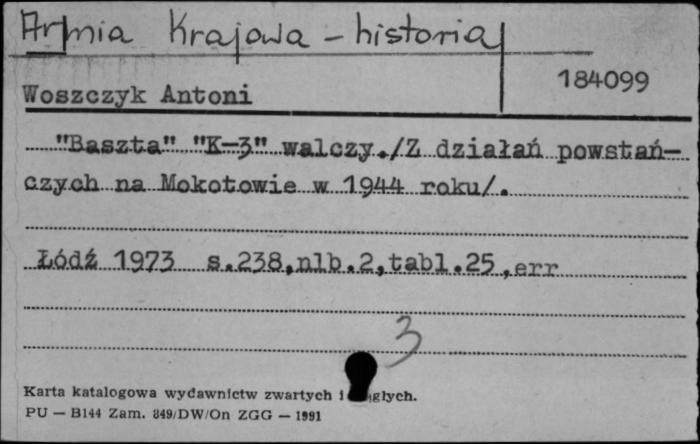 Armia Krajowa – historia
184099
Woszczyk Antoni
"Baszta" "K–3" walczy./Z działań powstań–
czych na Mokotowie w 1944 roku/.
Łódź 1973 s.238,nlb.2,tabl.25,err
3
Karta katalogowa wydawnictw zwartych i
PU — B144 Zam. 849/DW/On ZGG — 1991